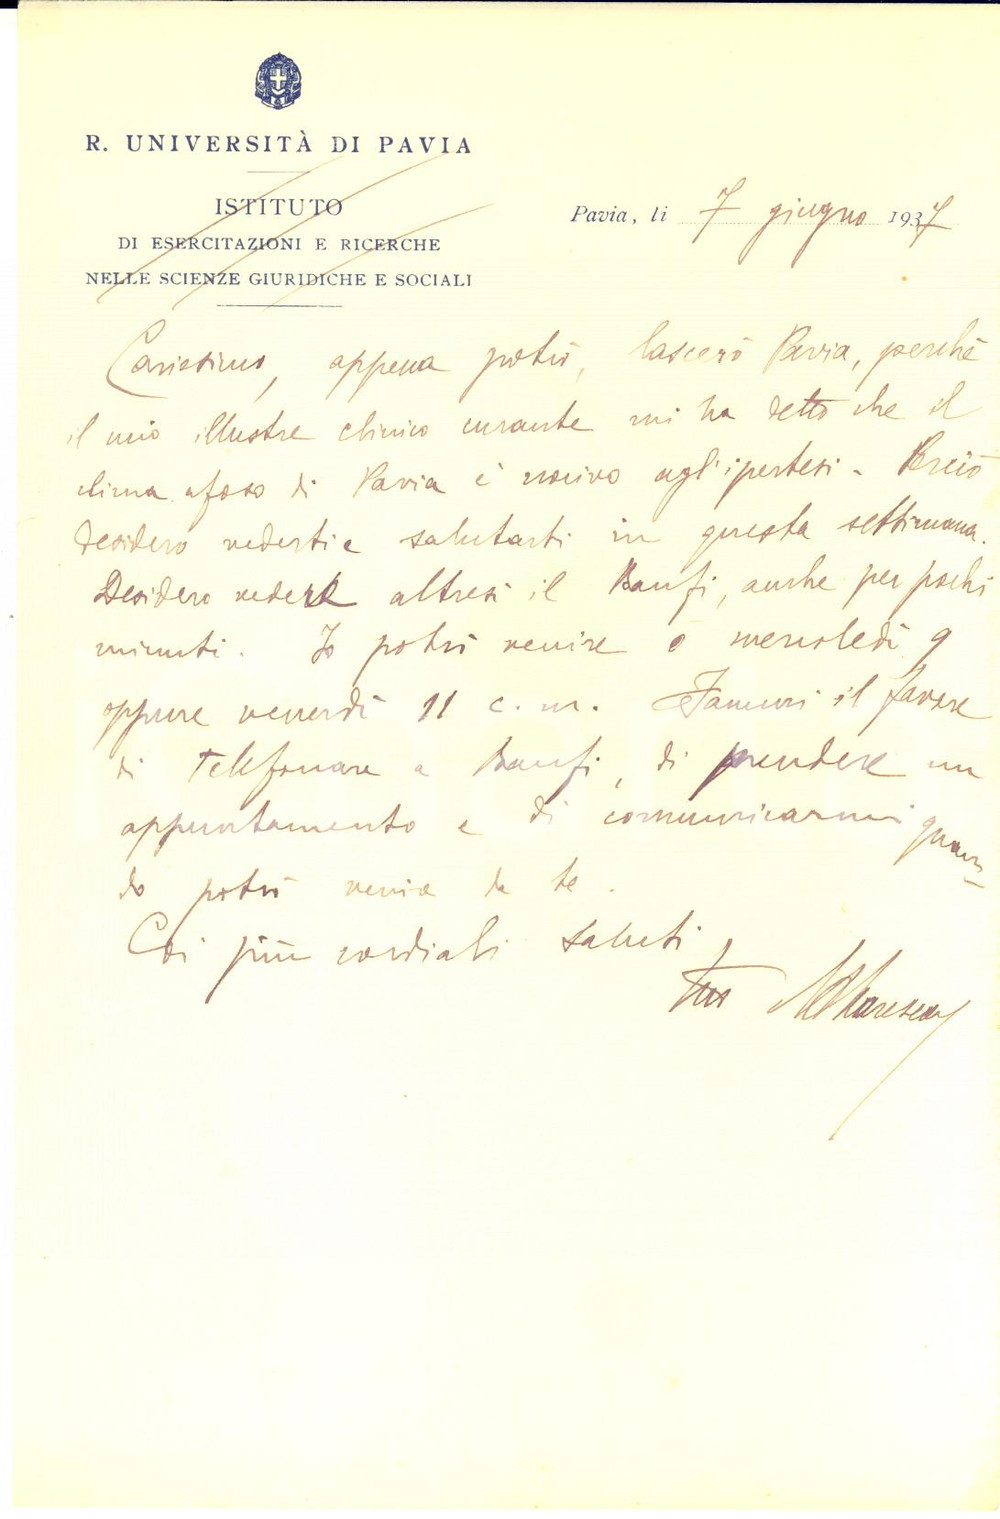 R. UNIVERSITÀ DI PAVIA
ISTITUTO
DI ESERCITAZIONI E RICERCHE
NELLE SCIENZE GIURIDICHE E SOCIALI
Pavia, li 7 giugno 1937
Carissimo, appena potrò, lascerò Pavia, perchè
il mio illustre clinico curante mi ha detto che il
clima afoso di Pavia è nocivo agl'ipertesi - Perciò
desidero vederti e salutarti in questa settimana.
Desidero vedere altresì il Banfi, anche per pochi
minuti. Io potrò venire o mercoledì 9
oppure venerdì 11 c. m. Fammi il favore
di telefonare a Banfi, di prendere un
appuntamento e di comunicarmi quan-
do potrò venire da te.
Coi più cordiali saluti
tuo